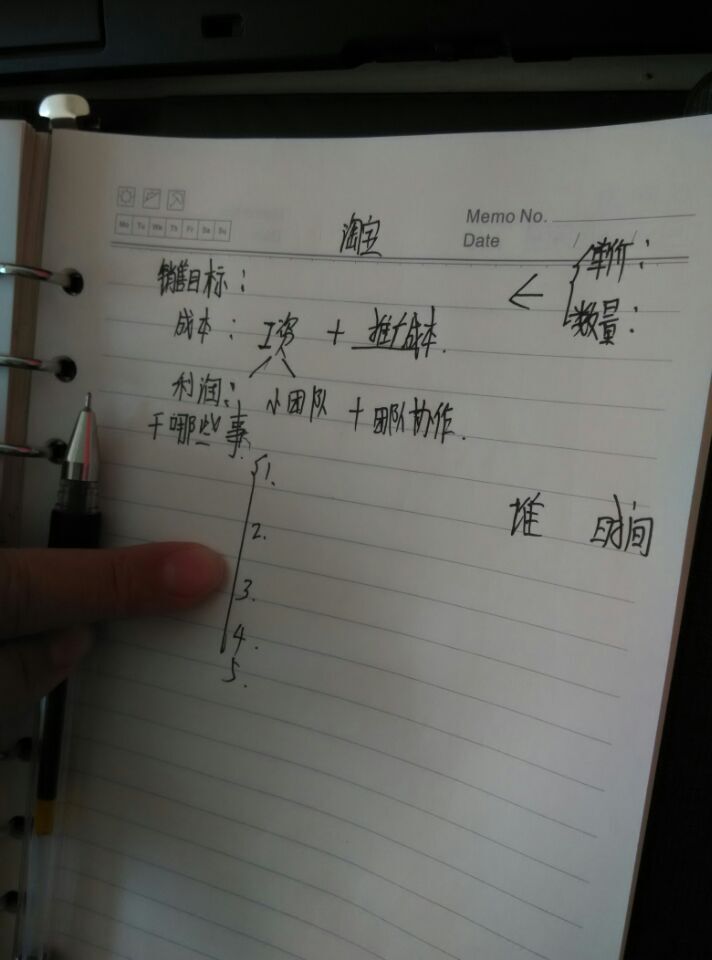 Memo No.
Mo Tu We Th Fr Sa Su
淘宝
Date / /
单价：
销售目标：
←
数量：
成本：工资 + 推广成本.
利润：小团队 + 团队协作.
干哪些事
1.
2.
堆 时间
3.
4.
5.